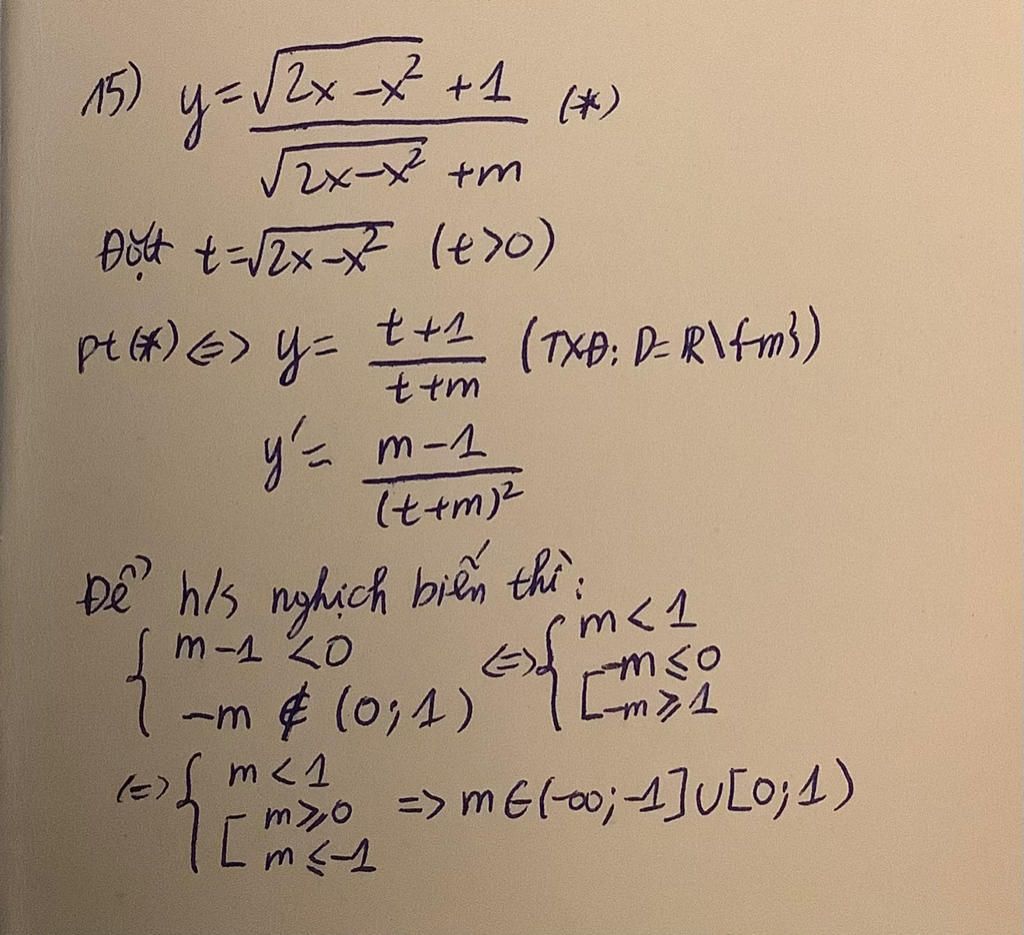 15) y = (√(2x-x²) + 1) / (√(2x-x²) + m) (*)
Đặt t = √(2x-x²) (t>0)
pt(*) <=> y = (t+1) / (t+m) (TXĐ: D = R\{-m})
y' = (m-1) / (t+m)²
Để h/s nghịch biến thì:
{ m-1 <0 ; -m ∉ (0;1) <=> { m<1 ; [ -m ≤ 0 ; -m ≥ 1
<=> { m<1 ; [ m ≥ 0 ; m ≤ -1 => m ∈ (-∞; -1] ∪ [0; 1)